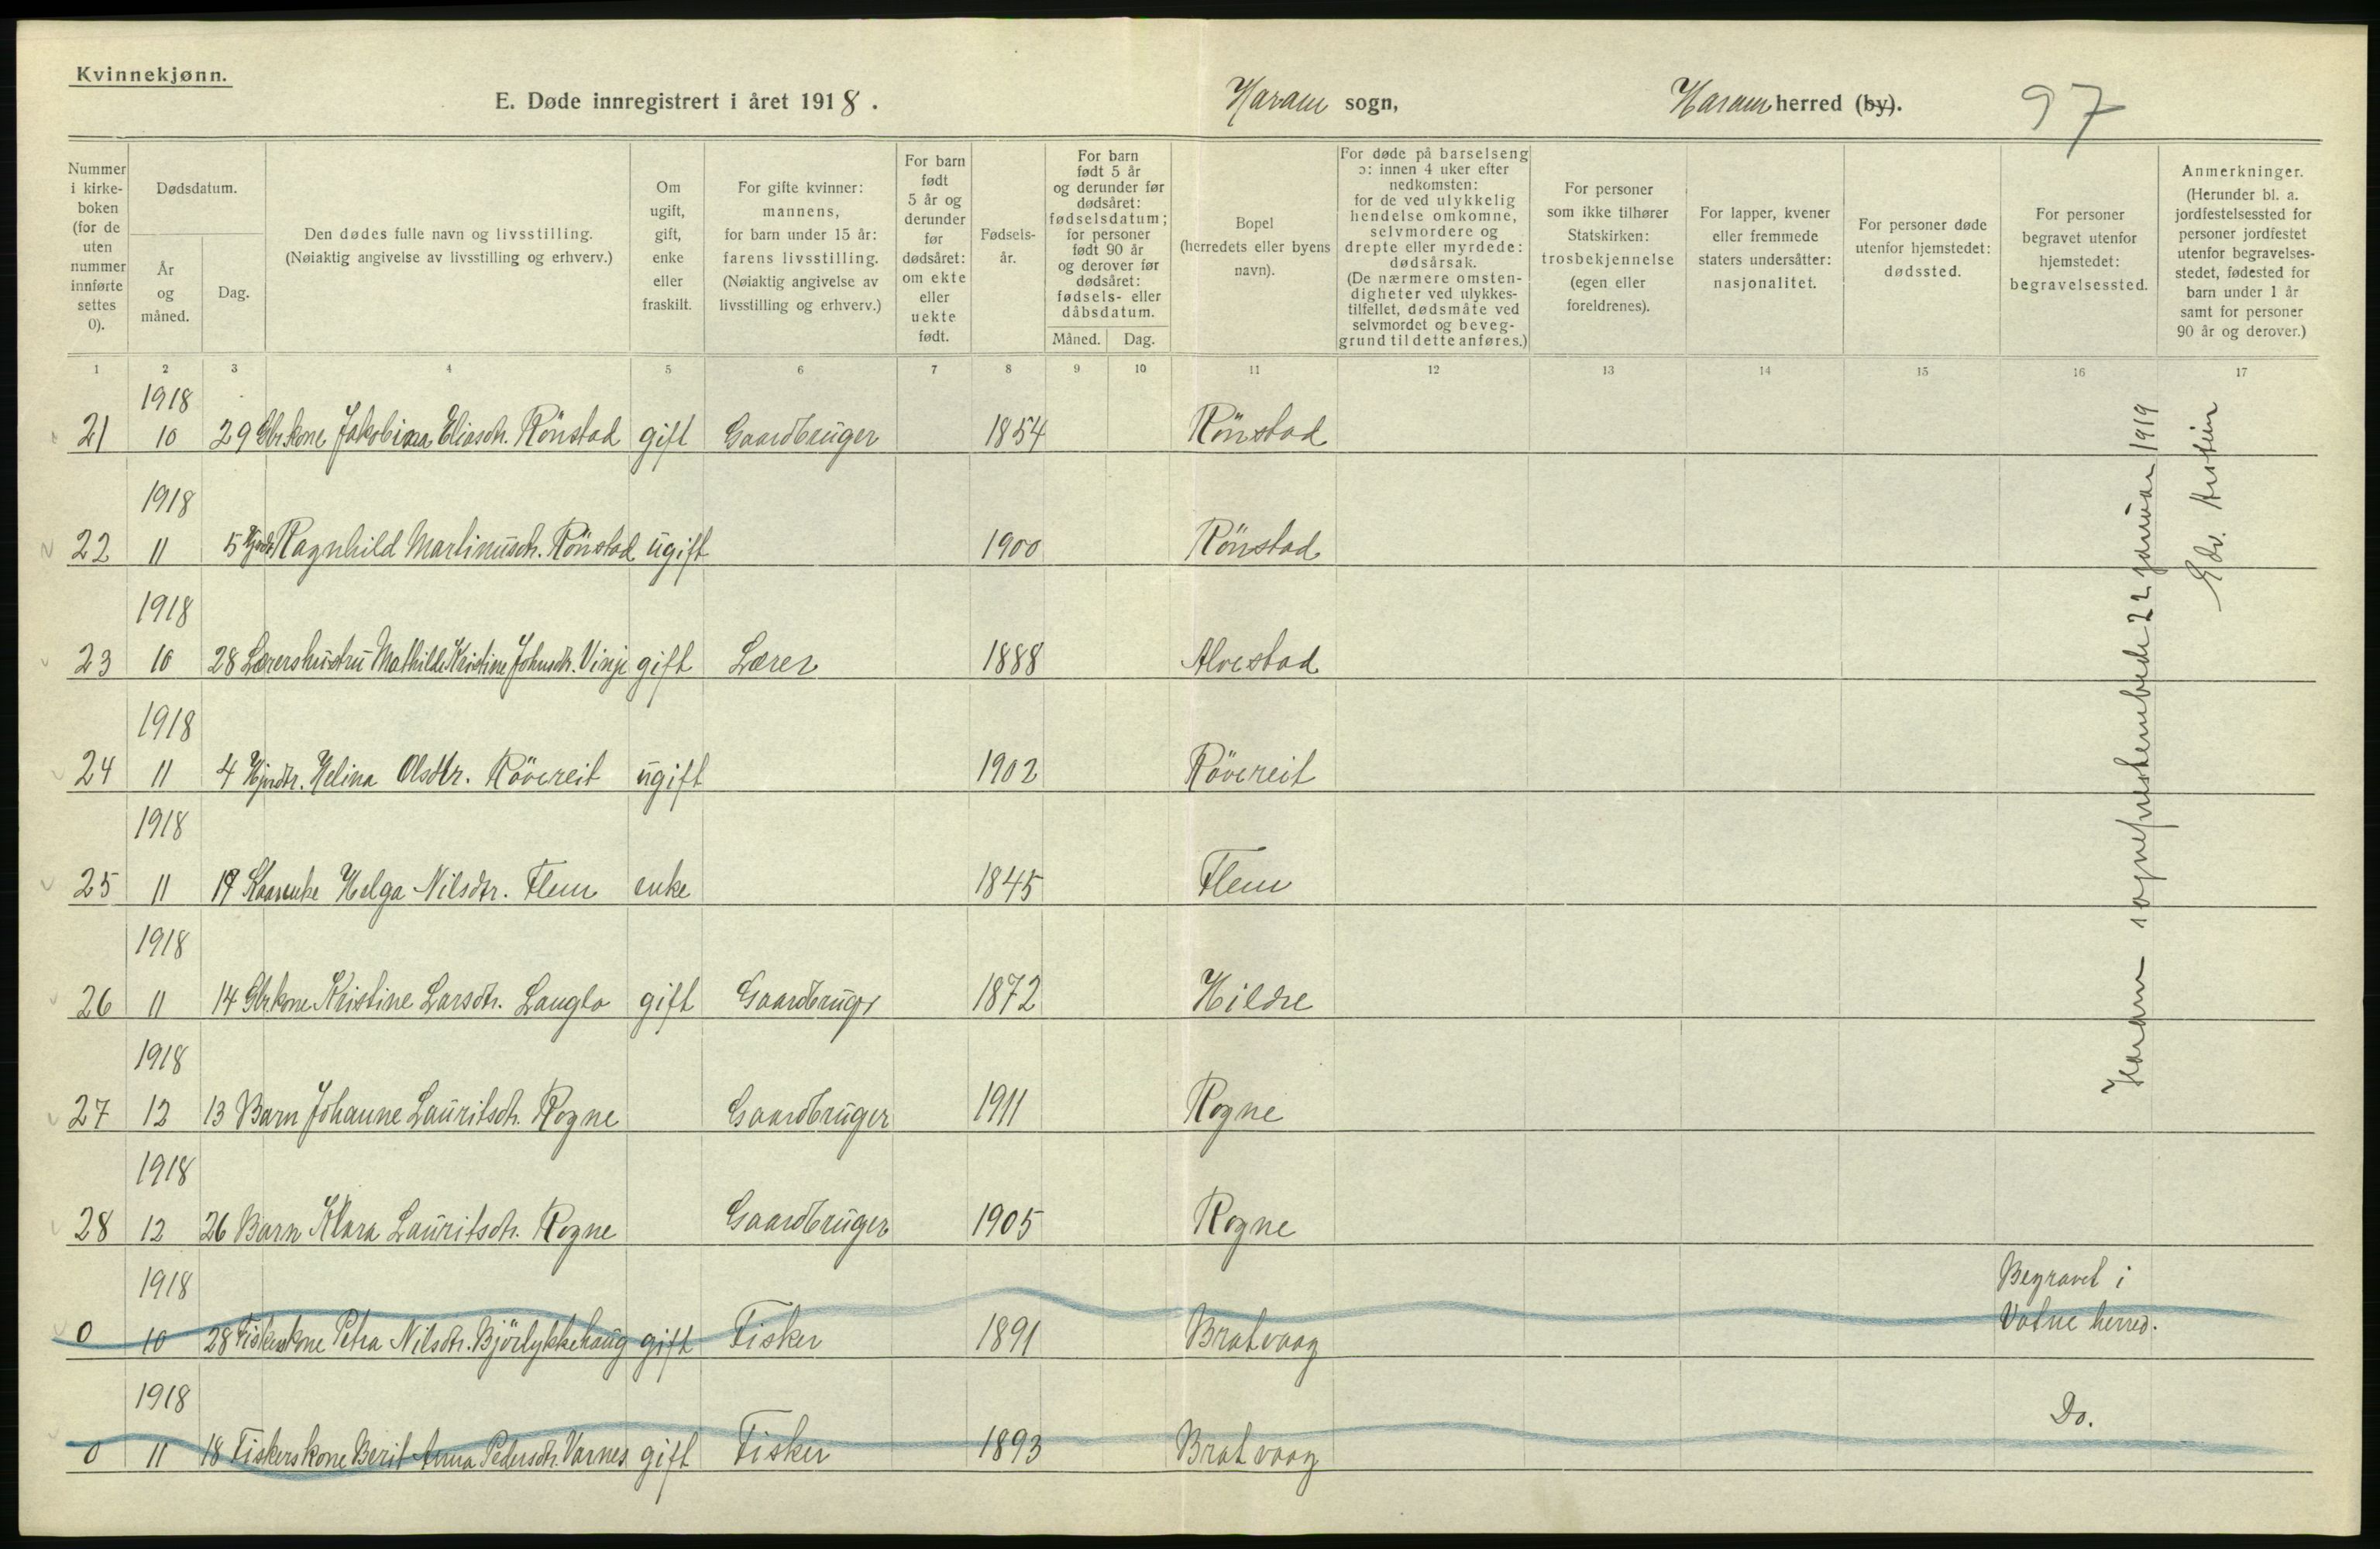 Kvinnekjønn.
E. Døde innregistrert i året 1918. Haram sogn, Haram herred (by). 97
Nummer i kirke-boken (for de uten nummer innførte settes 0).
Dødsdatum.
År og måned.
Dag.
Den dødes fulle navn og livsstilling.
(Nøiaktig angivelse av livsstilling og erhverv.)
Om ugift, gift, enke eller fraskilt.
For gifte kvinner: mannens, for barn under 15 år: farens livsstilling. (Nøiaktig angivelse av livsstilling og erhverv.)
For barn født 5 år og derunder før dødsåret: om ekte eller uekte født.
Fødsels-år.
For barn født 5 år og derunder før dødsåret: fødselsdatum; for personer født 90 år og derover før dødsåret: fødsels- eller dåbsdatum.
Måned. Dag.
Bopel (herredets eller byens navn).
For døde på barselseng ɔ: innen 4 uker efter nedkomsten: for de ved ulykkelig hendelse omkomne, selvmordere og drepte eller myrdede: dødsårsak. (De nærmere omsten-digheter ved ulykkes-tilfellet, dødsmåte ved selvmordet og beveg-grund til dette anføres.)
For personer som ikke tilhører Statskirken: trosbekjennelse (egen eller foreldrenes).
For lapper, kvener eller fremmede staters undersåtter: nasjonalitet.
For personer døde utenfor hjemstedet: dødssted.
For personer begravet utenfor hjemstedet: begravelsessted.
Anmerkninger. (Herunder bl. a. jordfestelsessted for personer jordfestet utenfor begravelses-stedet, fødested for barn under 1 år samt for personer 90 år og derover.)
1 2 3 4 5 6 7 8 9 10 11 12 13 14 15 16 17
1918
21 10 29 Gbr.kone Jakobina Eliasdtr. Rönstad gift Gaardbruger 1854 Rönstad
1918
22 11 5 Ragnhild Martinusdtr. Rönstad ugift 1900 Rönstad
1918
23 10 28 Lærershustru Mathilde Kristine Johnsdtr. Vinje gift Lærer 1888 Alvestad
1918
24 11 4 Helina Olsdtr. Rövereit ugift 1902 Rövereit
1918
25 11 19 Kaarenke Helga Nilsdtr. Flem enke 1845 Flem
1918
26 11 14 Gbr.kone Kristine Larsdtr. Langlo gift Gaardbruger 1872 Hildre
1918
27 12 13 Barn Johanne Lauritsdtr. Rogne Gaardbruger 1911 Rogne
1918
28 12 26 Barn Klara Lauritsdtr. Rogne Gaardbruger 1905 Rogne
1918 Begravet i
0 10 28 Fiskerkone Petra Nilsdtr. Björlykkehaug gift Fisker 1891 Bratvaag Vatne herred.
1918 Do.
0 11 18 Fiskerskone Berit Anna Pedersdtr. Varnes gift Fisker 1893 Bratvaag
Haram sogneprestembede 22 januar 1919
Edv.